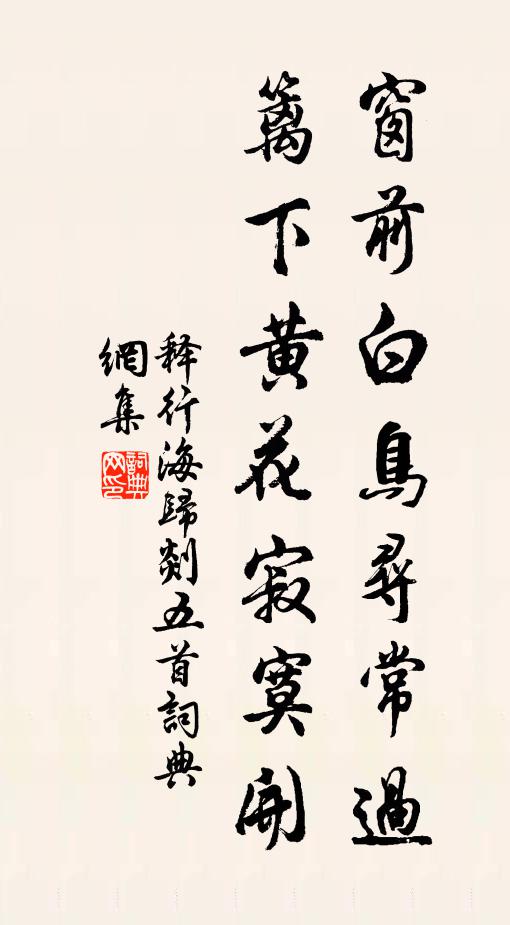 窗前白鳥尋常過
籬下黃花寂寞開
释行海歸剡五首詞典
網集
詞典
网印